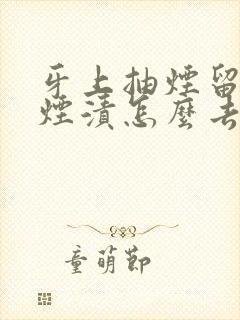 牙上抽煙留
煙漬怎麼去
童萌節